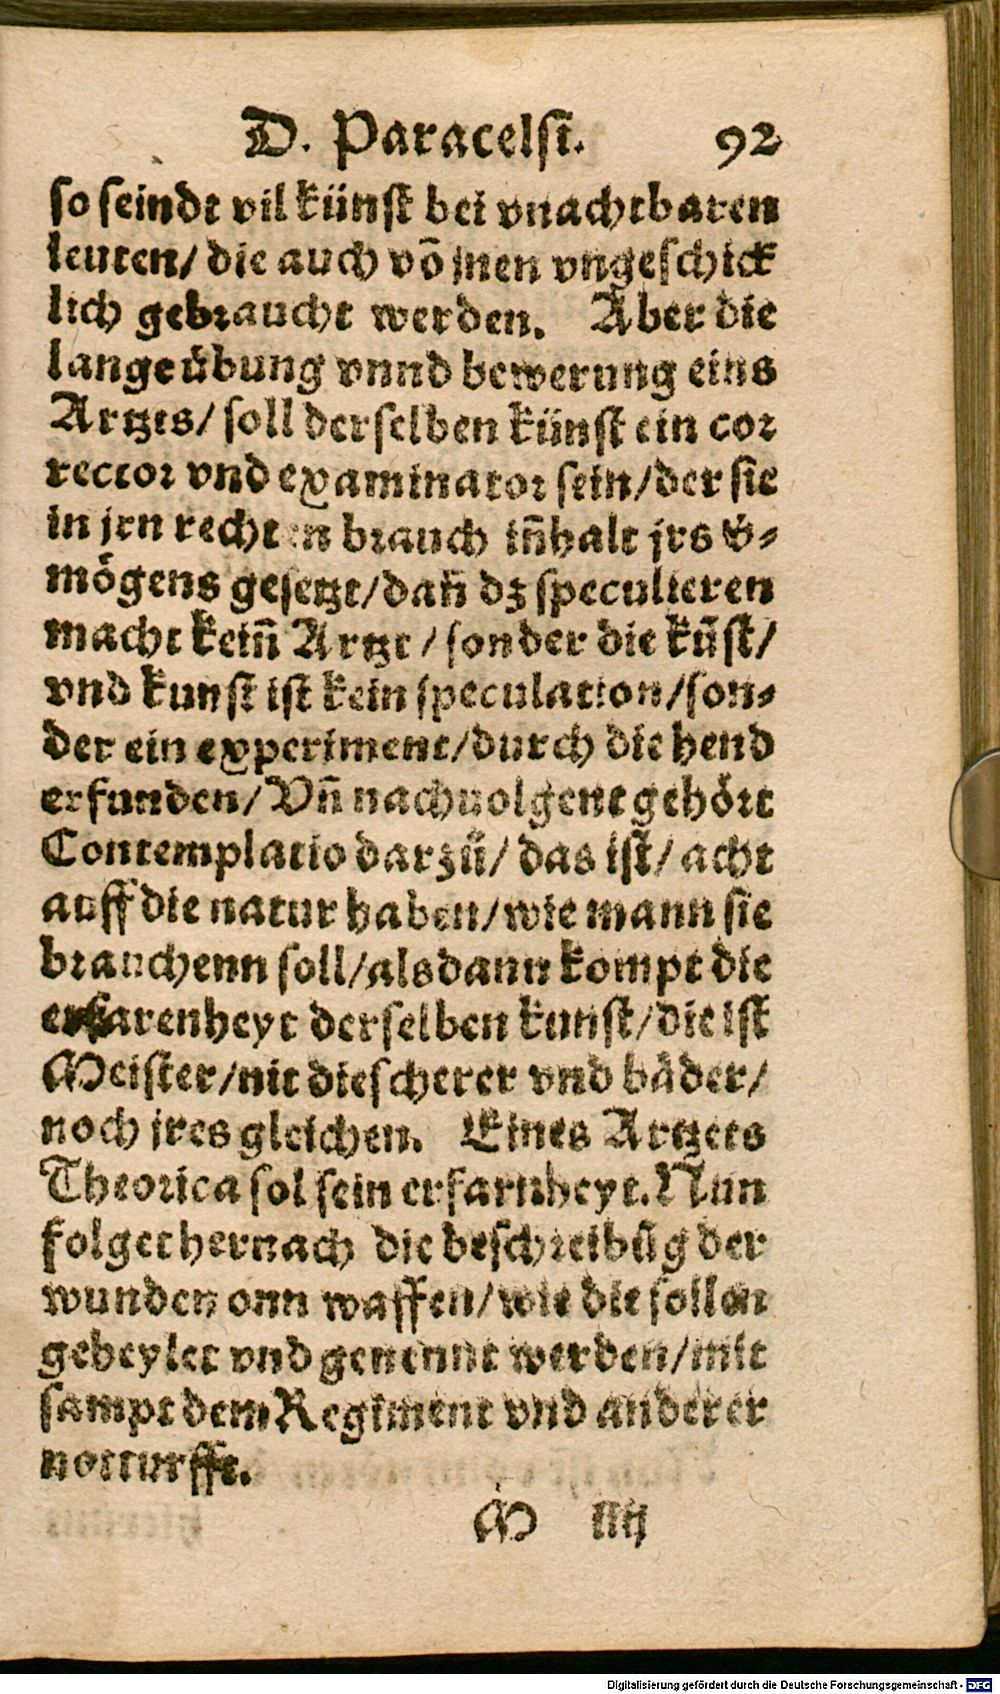 D. Paracelsi. 92
so seindt vil künst bei vnachtbaren
leuten/ die auch võ jnen vngeschick
lich gebraucht werden. Aber die
lange übung vnnd bewerung eins
Artzts/ soll derselben künst ein cor
rector vnd examinator sein/der sie
in jrn rechten brauch iñhalt jrs v̈-
mögens gesetzt/dañ dz speculieren
macht keiñ Artzt/sonder die kũst/
vnd kunst ist kein speculation/son-
der ein experiment/durch die hend
erfunden/Vñ nachuolgent gehört
Contemplatio darzů/ das ist/ acht
auff die natur haben/wie mann sie
brauchenn soll/alsdann kompt die
erfarenheyt derselben kunst/die ist
Meister/nit die scherer vnd bäder/
noch jres gleichen. Eines Artzets
Theorica sol sein erfarnheyt. Nun
folget hernach die beschreibũg der
wunden onn waffen/wie die sollen
geheylet vnd genennt werden/mit
sampt dem Regiment vnd anderer
notturfft.
M iiij
Digitalisierung gefördert durch die Deutsche Forschungsgemeinschaft - DFG